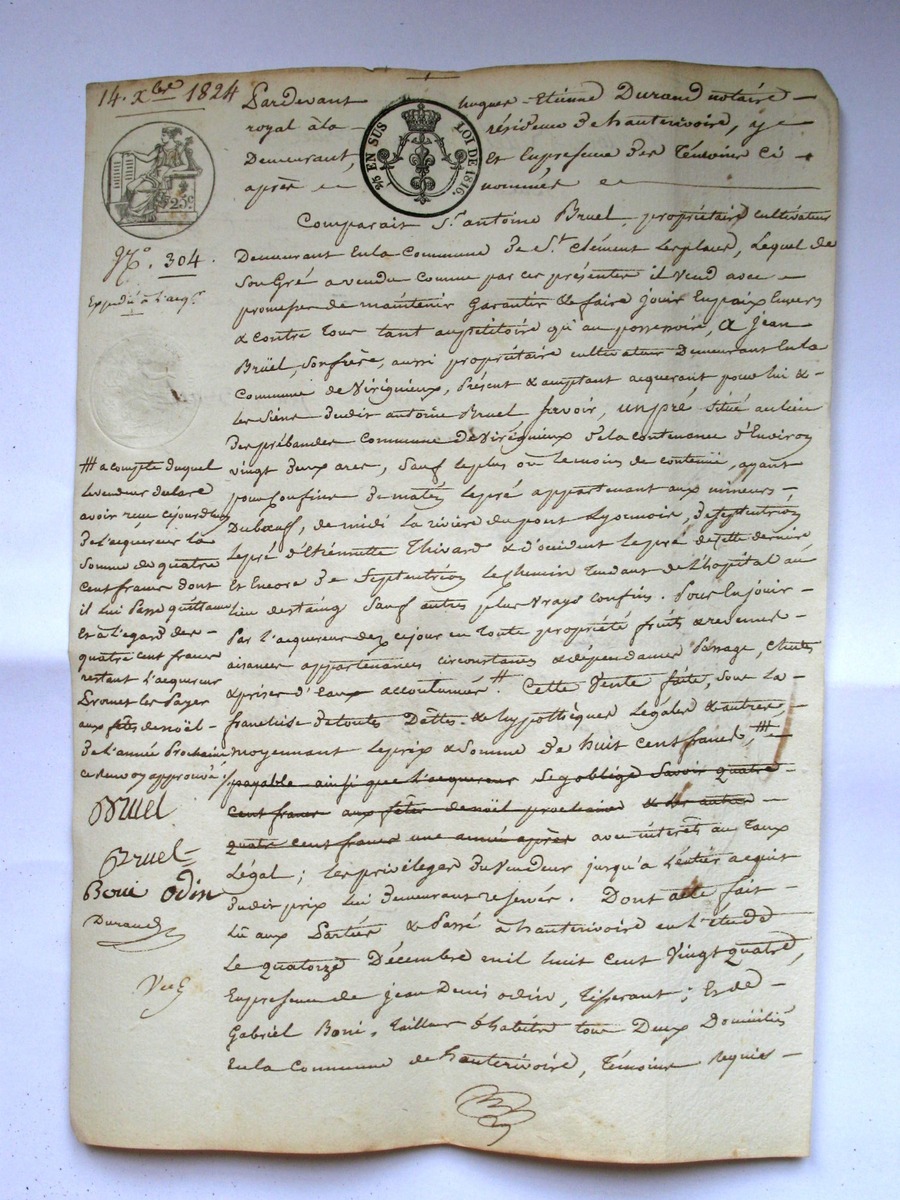 14. Xbre 1824
Pardevant hugues-Etienne Durand notaire
royal à la résidence de hauterivoire, y
Demeurant, et En presence des Témoins ci
après nommés
25 EN SUS LOI DE 1816.
25c
No. 304.
Expédié à l'acqr
Comparait Sr. antoine Bruel, propriétaire cultivateur
Demeurant En la Commune de St. Clément Les places, Lequel de
Son Gré a vendu Comme par ces présentes il vend avec
promesse de maintenir Garantir & faire jouir En paix Envers
& Contre Tous tant au pétitoire qu'au possessoire, a Jean
Bruël, Son frère, aussi propriétaire cultivateur Demeurant En la
Commune de Viriguieux, Présent & acceptant acquerant pour lui &
les Siens dudit antoine Bruel Savoir, un pré Situé au lieu
Des prébandes Commune de Viriguieux de la contenance d'Environ
vingt deux ares, Sauf le plus où le moins de contenu, ayant
pour Confins de matin le pré appartenant aux mineurs
Duboeuf, de midi la rivière du pont Lyonnois, de Septentrion
le pré d'Etiennette Thivard & d'occident le pré de cette dernière
Et Encore de Septentrion le chemin Tendant de L'hopital au
lieu de Sauf autres plus vrays Confins. Pour En jouir
Par l'acquereur dez ce jour en Toute propriété fruits & revenus
aisances appartenances circonstances & dépendances Passage, chutes
& prises d'Eaux accoutumées. Cette Vente faite, Sous la
franchise de toutes Dettes & hypothèques Légales & autres
moyennant le prix & Somme de huit cent francs, #
payable ainsi que l'acquereur S'y oblige Savoir quatre
cent francs aux fêtes de noël prochaine & les autres
quatre cent francs une année après avec intérêts au Taux
Légal; les privilèges du Vendeur jusqu'a L'entier acquit
dudit prix lui demeurant reservés. Dont acte fait
Lû aux Parties & Passé à hauterivoire en L'étude
Le quatorze Décembre mil huit cent Vingt quatre,
En presence de jean Denis odin, Tisserant; Et de
Gabriel Boni, Tailleur d'habits tous Deux Domiciliés
En la Commune de hauterivoire, Témoins Requis
# a compte duquel
le vendeur declare
avoir reçu ce jourdhuy
de l'acquereur la
Somme de quatre
Cent francs dont
il lui Passe quittance
Et à l'egard des
quatre cent francs
restant l'acquereur
Promet les Payer
aux fêtes de noël
de l'année Prochaine
ce renvoy approuvé
Bruel
Bruel
Boni odin
Durand